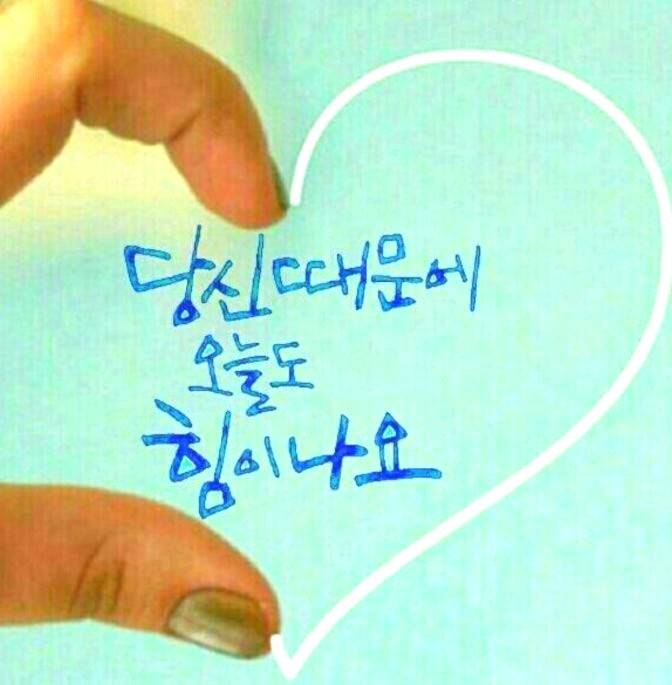 당신때문에
오늘도
힘이나요